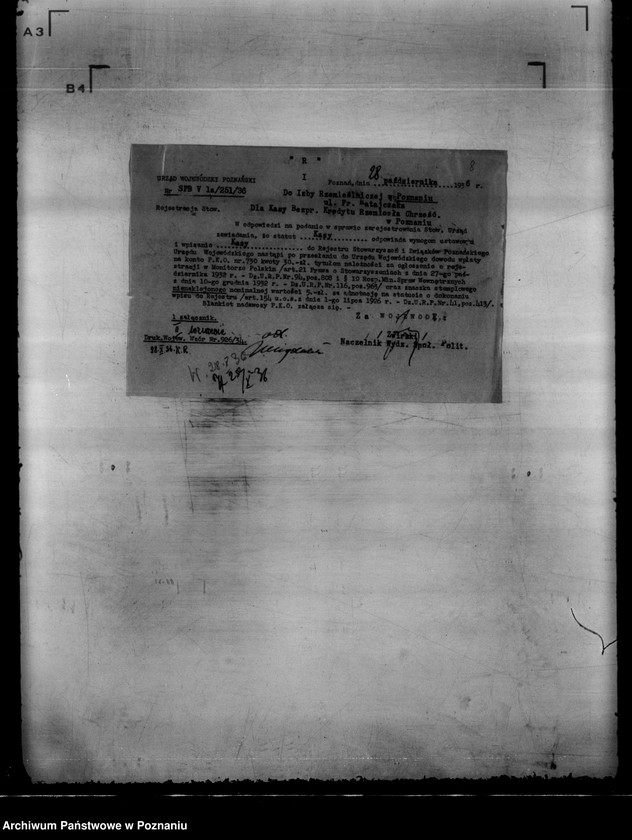 A3
B4
" R "
8
I
URZĄD WOJEWÓDZKI POZNAŃSKI
Poznań, dnia 28 października 1936 r.
Nr SPB V 1a/251/36
Do Izby Rzemieślniczej w Poznaniu
ul. Fr. Ratajczaka
Rejestracja Stow.
Dla Kasy Bezpr. Kredytu Rzemiosła Chrześc.
w Poznaniu
W odpowiedzi na podanie w sprawie zarejestrowania Stow. Urząd
zawiadamia, że statut Kasy odpowiada wymogom ustawowym
i wpisanie Kasy do Rejestru Stowarzyszeń i Związków Poznańskiego
Urzędu Wojewódzkiego nastąpi po przesłaniu do Urzędu Wojewódzkiego dowodu wpłaty
na konto P.K.O. nr.730 kwoty 30.-zł. tytułem należności za ogłoszenie o reje-
stracji w Monitorze Polskim /art.21 Prawa o Stowarzyszeniach z dnia 27-go paź-
dziernika 1932 r. - Dz.U.R.P.Nr.94,poz.808 i § 10 Rozp.Min.Spraw Wewnętrznych
z dnia 10-go grudnia 1932 r. - Dz.U.R.P.Nr.116,poz.965/ oraz znaczka stemplowego
nieskalętego nominalnej wartości 5.-zł. za adnotację na statucie o dokonaniu
wpisu do Rejestru /art.154 u.o.s.z dnia 1-go lipca 1926 r. - Dz.U.R.P.Nr.41,poz.413/.
Blankiet nadawczy P.K.O. załącza się. -
Za WOJEWODĘ:
1 załącznik.
Druk.Wojew. Wzór Nr.926/34.
Naczelnik Wydz. Społ. Polit.
Archiwum Państwowe w Poznaniu